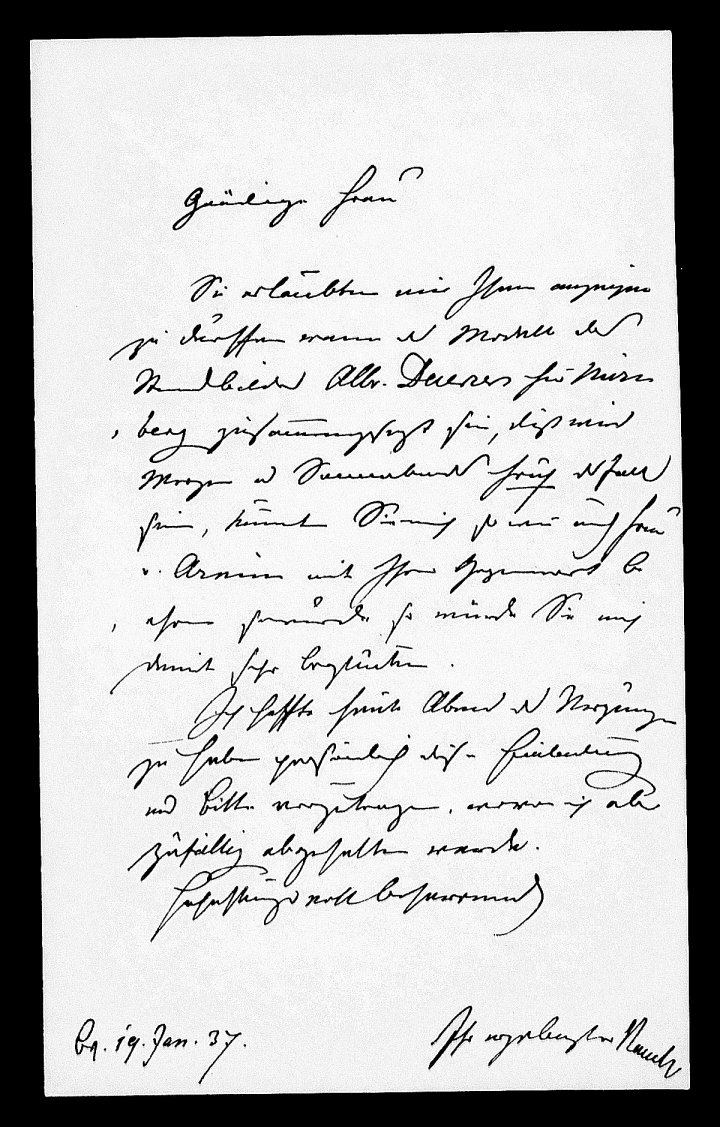 Gnädige Frau
Sie erlaubten mir Ihnen anzeigen
zu dürffen wann das Modell des
Standbildes Albr. Duerers für Nürn
berg zusammengesezt sein, dieß wird
Morgen als Sonnabend früh der Fall
sein, könnten Sie mich so wie auch Frau
v. Arnim mit Ihrer Gegenwart be
ehren so würden Sie mich
damit sehr beglücken.
Ich hoffte heute Abend das Vergnügen
zu haben persönlich diese Einladung
und Bitte vorzutragen, wovon ich aber
zufällig abgehalten wurde.
Hochachtungsvoll beharrend
Ihr ergebenster Rauch
Bn. 19. Jan. 37.